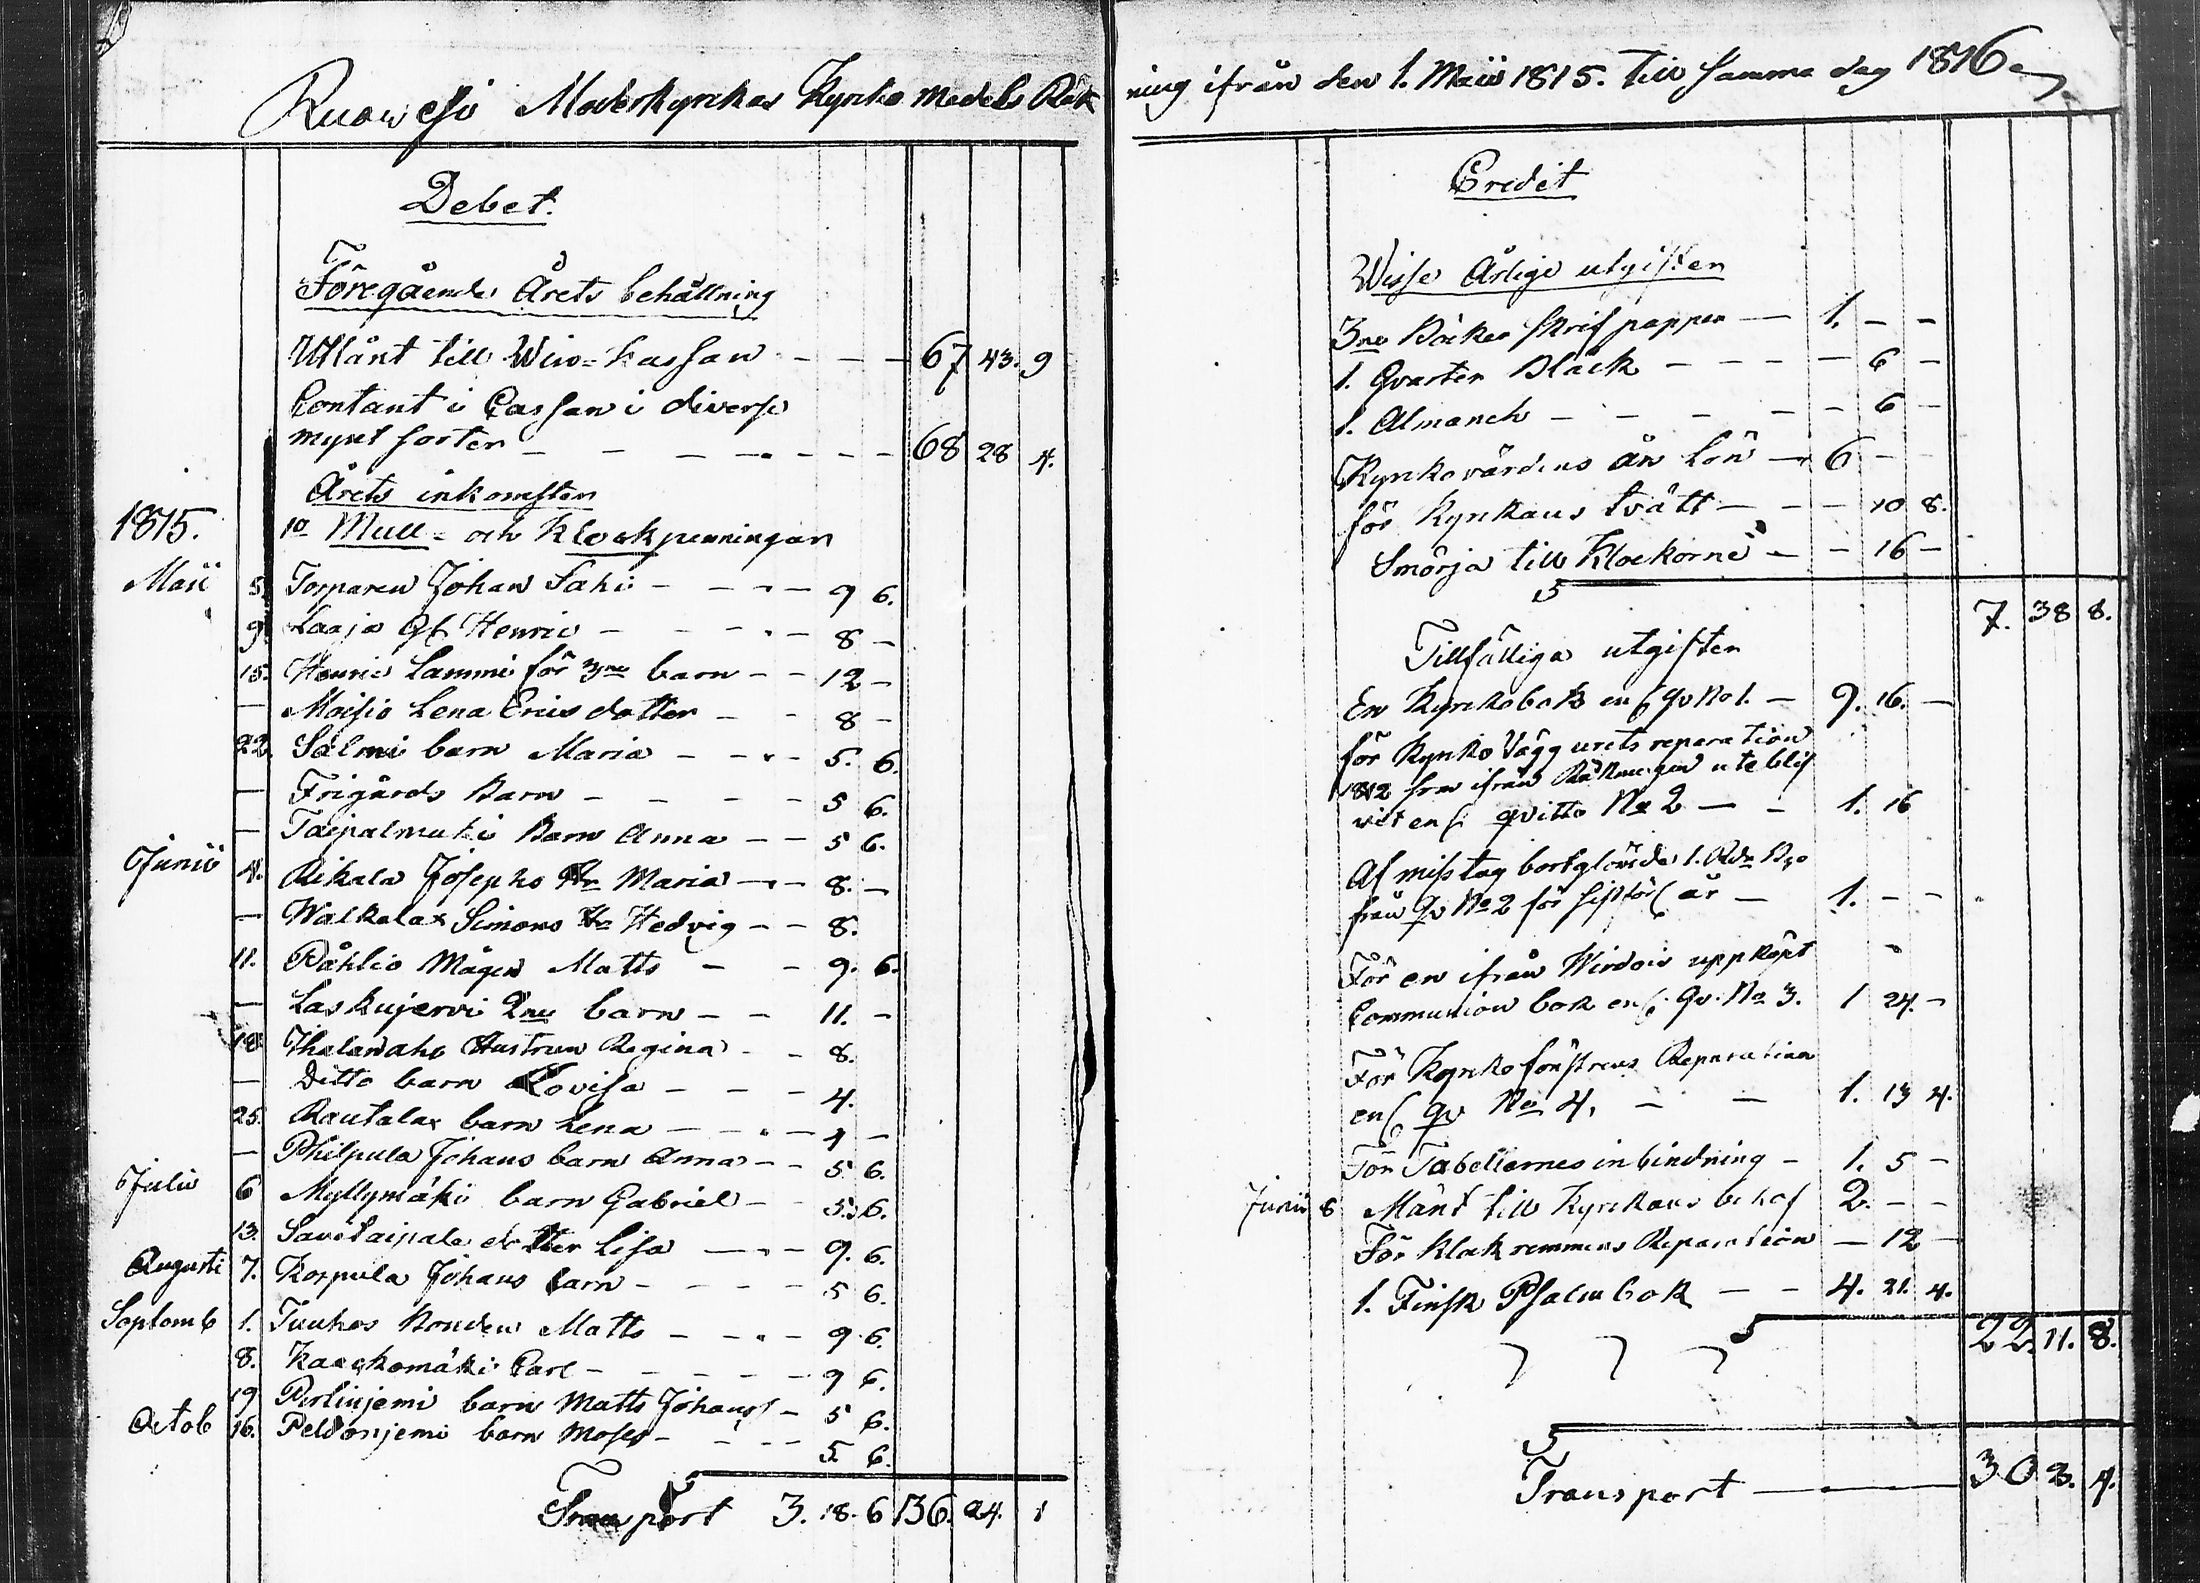 Ruowesi Moderkyrkas Kyrko medels Räk
Debet.
Föregående Årets behållning
Utlånt till Win-kassan - - - 67 43. 9
Contant i Cassan i diverse
mynt sorter - - - - - - - 68 28 4.
Årets inkomster
1815. 1o Mull- och Klockpenningar
Maii 5. Torparen Johan Fahi - - - - 9 6.
9. Laaja Gl Henric - - - - 8 -
15. Henric Lammi för 3ne barn - - 12 -
— Moisio Lena Ericsdotter - - 8 -
22. Salmi barn Maria - - - - 5. 6.
— Frigårds Barn - - - - 5 6.
— Taipalmuki Barn Anna - - 5 6.
Junii 4. Rikala Josephs Hu Maria - - 8. -
— Walkala Simons Hu Hedvig - - 8.
11. Påhlio Mågen Matts - - 9. 6.
— Laskujervi 2ne barn - - 11. -
18. Hustrun Regina - - 8.
— Ditto barn Lovisa - - - 4.
25. Rautala barn Lena - - - - 4 -
— Philpula Johans barn Anna - - 5 6.
Julii 6 Myllymäki barn Gabriel - - 5. 6.
13. Savitaipale dotter Lisa - - - 9. 6.
Augusti 7. Korpula Johans barn - - - - 5 6.
Septemb 1. Tuuhos Bonden Matts - - - - 9. 6.
8. Kaackomäki Carl - - - - - 9 6.
19 Perlinjemi barn Matts Johans - 5 6.
Octob 16. Peldonjemi barn Moses - - - - 5 6.
Transport 3. 18. 6 136. 24. 1
ning ifrån den 1. Maii 1815. till samma dag 1816
Credit
Wisse Årlige utgifter
3ne Böcker skrif papper - 1. - -
1. Qvarter Bläck - - - - - 6 -
1. Almanch - - - - - - 6 -
Kyrkovärdens års lön - 6 - -
för Kyrkans tvätt - - - 10 8.
Smörja till Klockorne - - 16 -
7. 38 8.
Tillfällige utgifter
En Kyrkobok en Qv No 1. - 9. 16. -
för Kyrko Vägg urets reparation
1812 som ifrån Räkningen uteblif
vit en qvitto No 2 - - 1. 16
Af misstag bortglömde 1. Rdr Bco
från Qv No 2 för sistför år - 1. - -
För en ifrån Wirdois uppköpt
Communion bok en Qv. No 3. 1 24. -
För Kyrko fönstrens Reparation
en qv No 4. - - 1. 13 4.
För Tabellernes inbindning - 1. 5 -
Junii 8 Mänt till Kyrkans behof 2. - -
För Klock remmens Reparation - 12 -
1. Finsk Psalmbok - - 4. 21. 4.
22. 11. 8.
Transport ——— 30 2. 4.